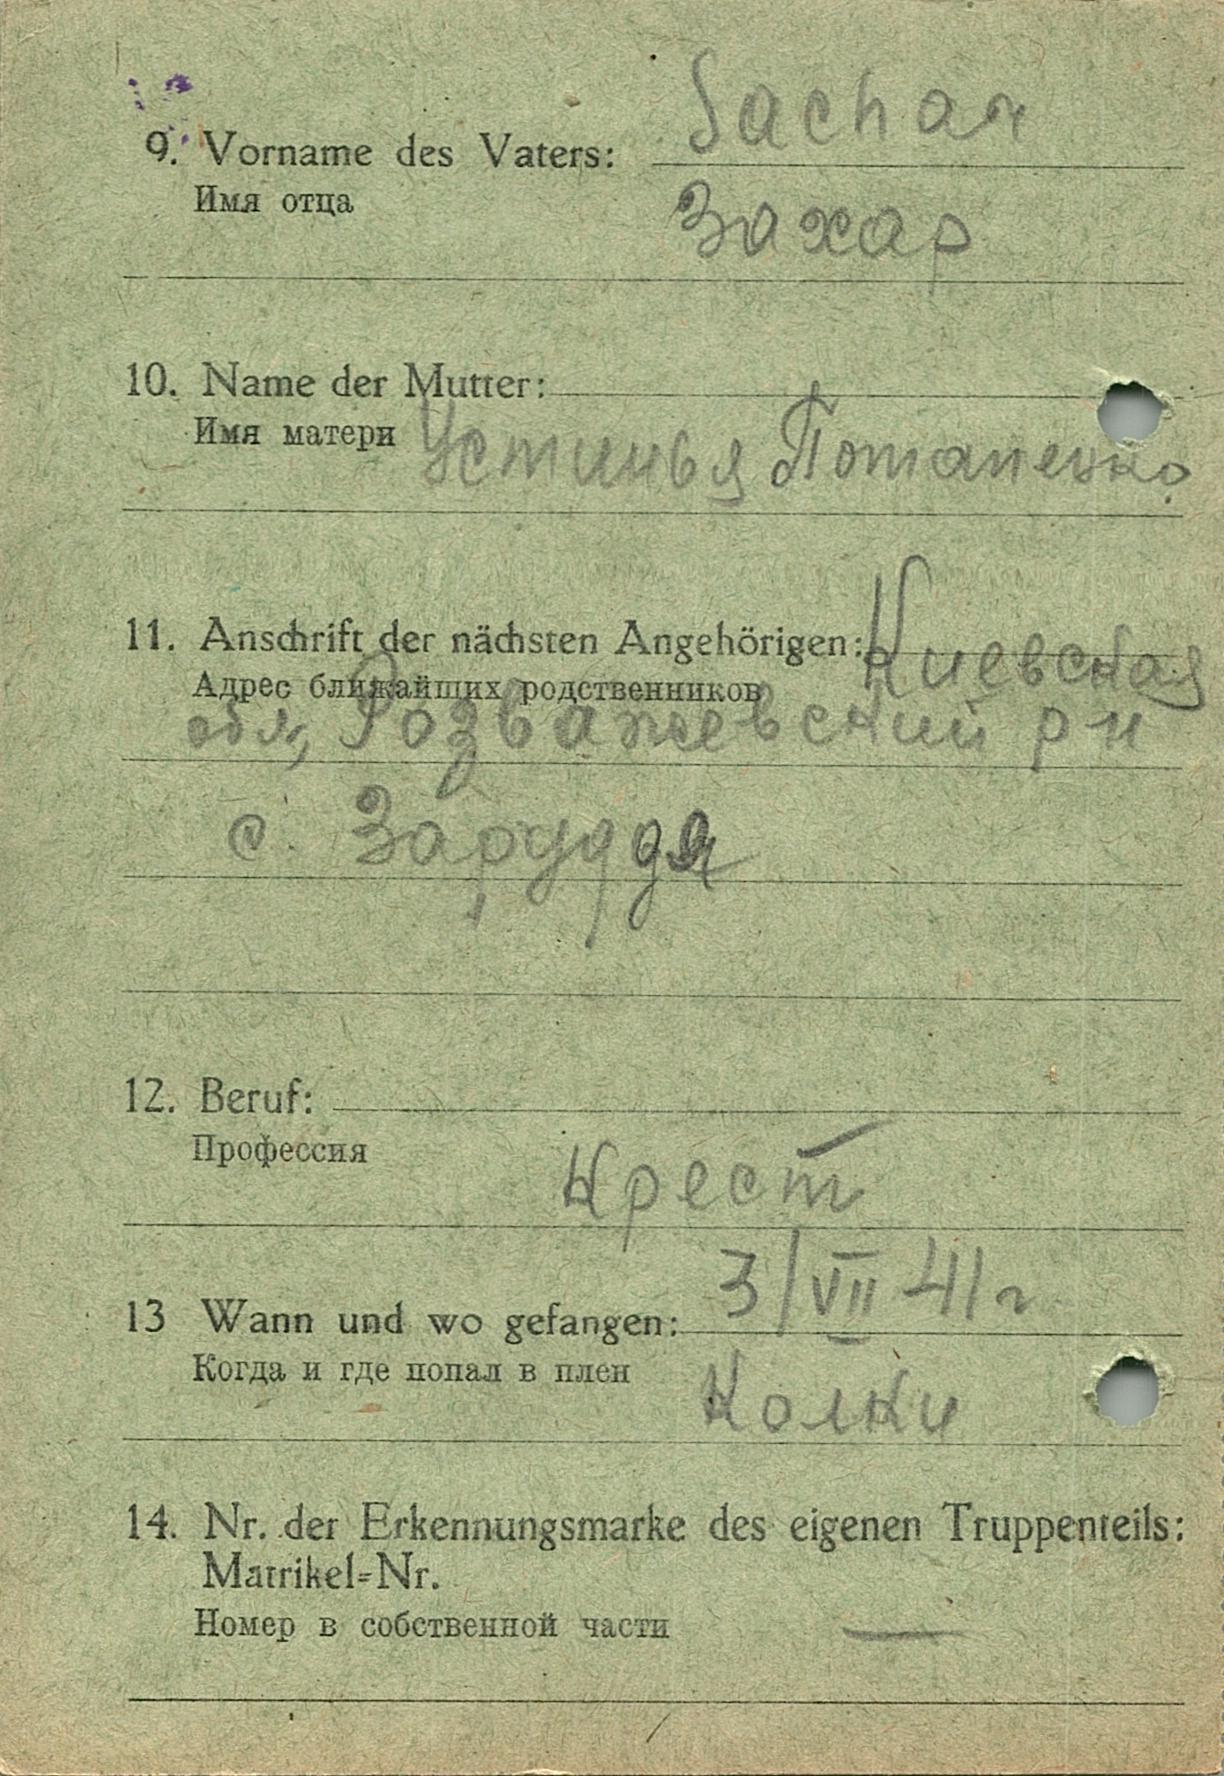 Sachar
9. Vorname des Vaters:
Имя отца
Захар
10. Name der Mutter:
Имя матери Устинья Потапенко
11. Anschrift der nächsten Angehörigen: Киевская
Адрес ближайших родственников
обл, Розважевский р н
с. Заруддя
12. Beruf:
Профессия
Крест
3/VII 41 г
13 Wann und wo gefangen:
Когда и где попал в плен
Колки
14. Nr. der Erkennungsmarke des eigenen Truppenteils:
Matrikel-Nr.
Номер в собственной части —